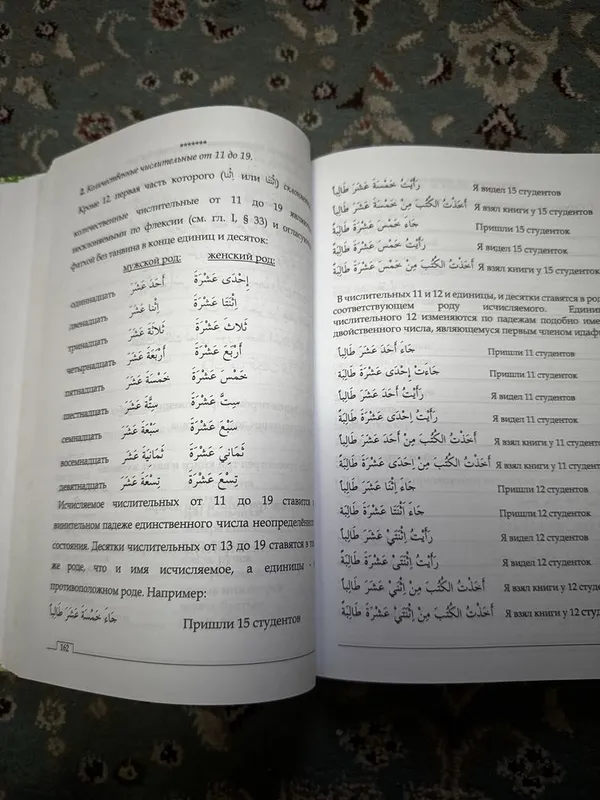 *******
2. Количественные числительные от 11 до 19.
Кроме 12, первая часть которого (اِثْنَا или اِثْنَتَا)
количественные числительные от 11 до 19
несклоняемыми по флексии (см. гл. I, § 33) и
фатхой без танвина в конце единиц и десяток:
мужской род: женский род:
одиннадцать أَحَدَ عَشَرَ إِحْدَى عَشْرَةَ
двенадцать اِثْنَا عَشَرَ اِثْنَتَا عَشْرَةَ
тринадцать ثَلَاثَةَ عَشَرَ ثَلَاثَ عَشْرَةَ
четырнадцать أَرْبَعَةَ عَشَرَ أَرْبَعَ عَشْرَةَ
пятнадцать خَمْسَةَ عَشَرَ خَمْسَ عَشْرَةَ
шестнадцать سِتَّةَ عَشَرَ سِتَّ عَشْرَةَ
семнадцать سَبْعَةَ عَشَرَ سَبْعَ عَشْرَةَ
восемнадцать ثَمَانِيَةَ عَشَرَ ثَمَانِيَ عَشْرَةَ
девятнадцать تِسْعَةَ عَشَرَ تِسْعَ عَشْرَةَ
Исчисляемое числительных от 11 до 19 ставится
винительном падеже единственного числа неопределённого
состояния. Десятки числительных от 13 до 19 ставятся в
же роде, что и имя исчисляемое, а единицы -
противоположном роде. Например:
جَاءَ خَمْسَةَ عَشَرَ طَالِباً Пришли 15 студентов
162
رَأَيْتُ خَمْسَةَ عَشَرَ طَالِباً Я видел 15 студентов
أَخَذْتُ الكُتُبَ مِنْ خَمْسَةَ عَشَرَ طَالِباً Я взял книги у 15 студентов
جَاءَ خَمْسَ عَشْرَةَ طَالِبَةً Пришли 15 студенток
رَأَيْتُ خَمْسَ عَشْرَةَ طَالِبَةً Я видел 15 студенток
أَخَذْتُ الكُتُبَ مِنْ خَمْسَ عَشْرَةَ طَالِبَةً Я взял книги у 15 студенток
В числительных 11 и 12 и единицы, и десятки ставятся в
соответствующем роду исчисляемого.
числительного 12 изменяются по падежам подобно
двойственного числа, являющемуся первым членом
جَاءَ أَحَدَ عَشَرَ طَالِباً Пришли 11 студентов
جَاءَتْ إِحْدَى عَشْرَةَ طَالِبَةً Пришли 11 студенток
رَأَيْتُ أَحَدَ عَشَرَ طَالِباً Я видел 11 студентов
رَأَيْتُ إِحْدَى عَشْرَةَ طَالِبَةً Я видел 11 студенток
أَخَذْتُ الكُتُبَ مِنْ أَحَدَ عَشَرَ طَالِباً Я взял книги у 11
أَخَذْتُ الكُتُبَ مِنْ إِحْدَى عَشْرَةَ طَالِبَةً Я взял книги у 11
جَاءَ اِثْنَا عَشَرَ طَالِباً Пришли 12 студентов
جَاءَ اثْنَتَا عَشْرَةَ طَالِبَةً Пришли 12 студенток
رَأَيْتُ اِثْنَيْ عَشَرَ طَالِباً Я видел 12 студентов
رَأَيْتُ اِثْنَتَيْ عَشْرَةَ طَالِبَةً Я видел 12 студенток
أَخَذْتُ الكُتُبَ مِنْ اِثْنَيْ عَشَرَ طَالِباً Я взял книги у 12
أَخَذْتُ الكُتُبَ مِنْ اِثْنَتَيْ عَشْرَةَ طَالِبَةً Я взял книги у 12